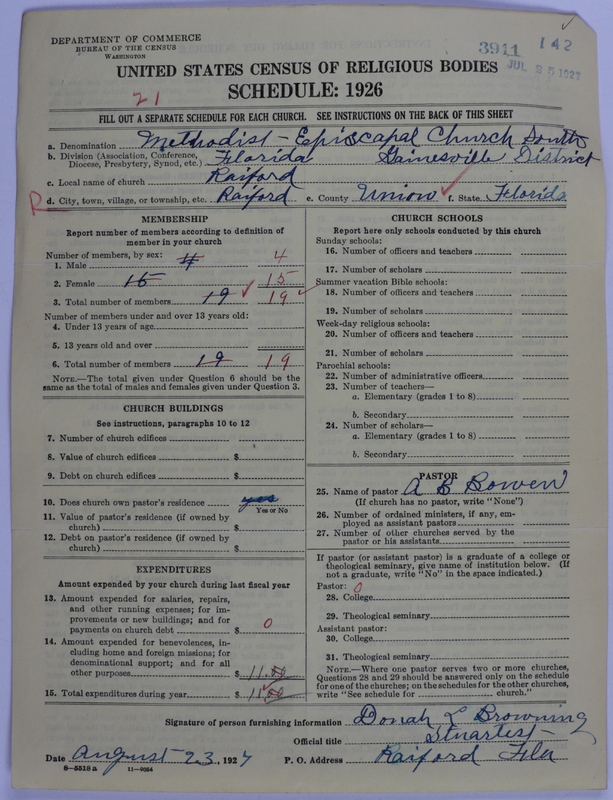 DEPARTMENT OF COMMERCE
BUREAU OF THE CENSUS
WASHINGTON
3911 142
JUL 25 1927
UNITED STATES CENSUS OF RELIGIOUS BODIES
SCHEDULE: 1926
21
FILL OUT A SEPARATE SCHEDULE FOR EACH CHURCH. SEE INSTRUCTIONS ON THE BACK OF THIS SHEET
a. Denomination Methodist-Episcapal Church South
b. Division (Association, Conference, Diocese, Presbytery, Synod, etc.) Florida Gainesville District
c. Local name of church Raiford
R d. City, town, village, or township, etc. Raiford e. County Union f. State Florida
MEMBERSHIP
Report number of members according to definition of
member in your church
Number of members, by sex:
1. Male 4 4
2. Female 15 15
3. Total number of members 19 19
Number of members under and over 13 years old:
4. Under 13 years of age
5. 13 years old and over
6. Total number of members 19 19
NOTE.—The total given under Question 6 should be the
same as the total of males and females given under Question 3.
CHURCH BUILDINGS
See instructions, paragraphs 10 to 12
7. Number of church edifices
8. Value of church edifices $
9. Debt on church edifices $
10. Does church own pastor's residence yes
Yes or No
11. Value of pastor's residence (if owned by
church) $
12. Debt on pastor's residence (if owned by
church) $
EXPENDITURES
Amount expended by your church during last fiscal year
13. Amount expended for salaries, repairs,
and other running expenses; for im-
provements or new buildings; and for
payments on church debt $ 0
14. Amount expended for benevolences, in-
cluding home and foreign missions; for
denominational support; and for all
other purposes $ 11.00
15. Total expenditures during year $ 11.00
CHURCH SCHOOLS
Report here only schools conducted by this church
Sunday schools:
16. Number of officers and teachers
17. Number of scholars
Summer vacation Bible schools:
18. Number of officers and teachers
19. Number of scholars
Week-day religious schools:
20. Number of officers and teachers
21. Number of scholars
Parochial schools:
22. Number of administrative officers
23. Number of teachers—
a. Elementary (grades 1 to 8)
b. Secondary
24. Number of scholars—
a. Elementary (grades 1 to 8)
b. Secondary
PASTOR
25. Name of pastor A B Bowen
(If church has no pastor, write "None")
26. Number of ordained ministers, if any, em-
ployed as assistant pastors
27. Number of other churches served by the
pastor or his assistants
If pastor (or assistant pastor) is a graduate of a college or
theological seminary, give name of institution below. (If
not a graduate, write "No" in the space indicated.)
Pastor: 0
28. College
29. Theological seminary
Assistant pastor:
30. College
31. Theological seminary
NOTE.—Where one pastor serves two or more churches,
Questions 28 and 29 should be answered only on the schedule
for one of the churches; on the schedules for the other churches,
write "See schedule for church."
Signature of person furnishing information Donah L Browning
Official title
Date August 23, 1927 P. O. Address Raiford Fla
8-5518 a 11-9054